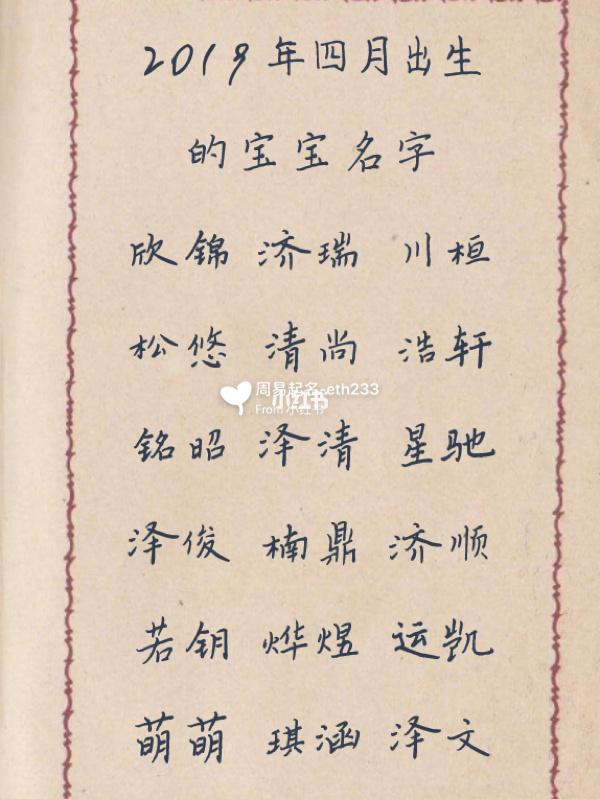 2019年四月出生
的宝宝名字
欣锦 济瑞 川桓
松悠 清尚 浩轩
周易起名-eth233
小红书
From 小红书
铭昭 泽清 星驰
泽俊 楠鼎 济顺
若钥 烨煜 运凯
萌萌 琪涵 泽文